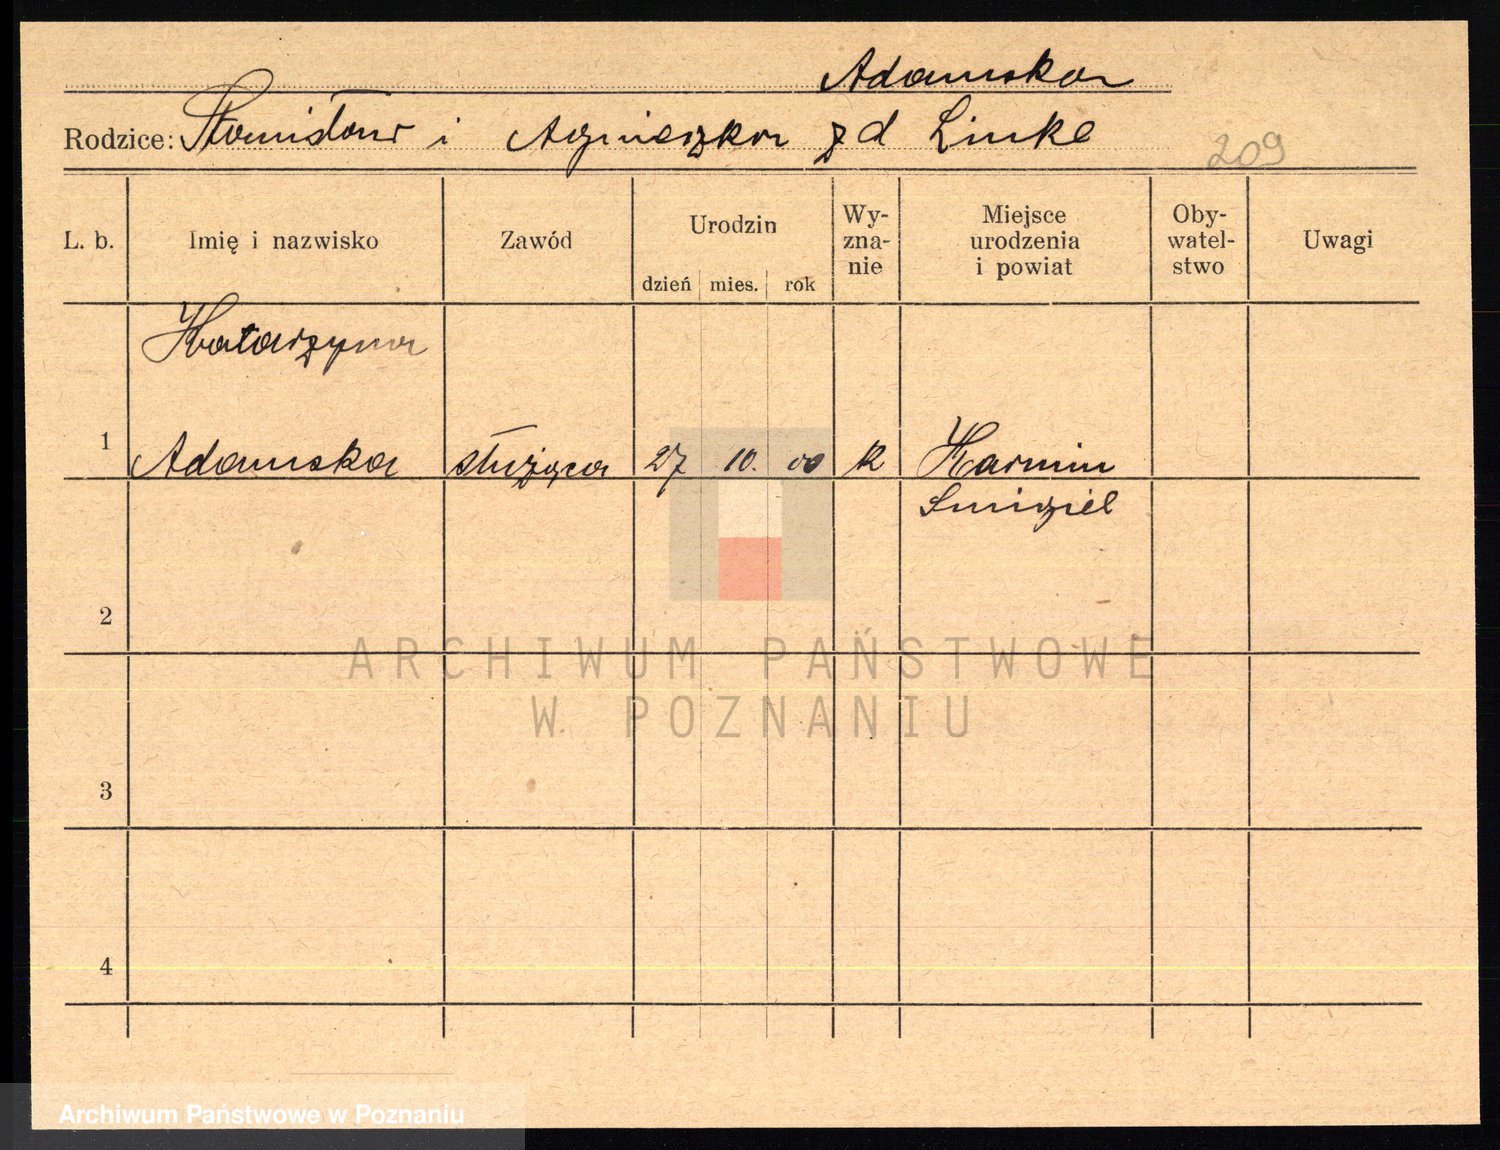 Adamska
Rodzice: Stanisław i Agnieszka z d Linke
209
L. b. Imię i nazwisko Zawód Urodzin dzień mies. rok Wy- zna- nie Miejsce urodzenia i powiat Oby- watel- stwo Uwagi
Katarzyna
1 Adamska służąca 27 10. 00 k Karmin
Smigiel
2
ARCHIWUM PAŃSTWOWE
W POZNANIU
3
4
Archiwum Państwowe w Poznaniu